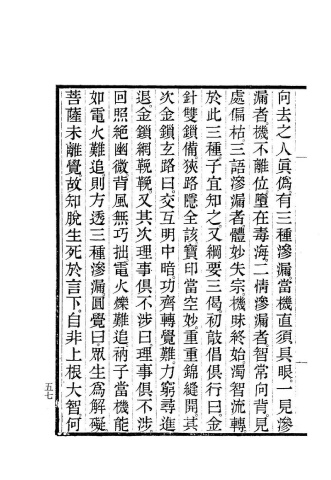 向去之人眞僞有三種滲漏當機直須具眼一見滲
漏者機不離位墮在毒海二情滲漏者智常向背見
處偏枯三語滲漏者體妙失宗機昧終始濁智流轉
於此三種子宜知之又綱要三偈初敲倡俱行曰金
針雙鎖備狹路隱全該寶印當空妙重重錦縫開其
次金鎖玄路曰交互明中暗功齊轉覺難力窮尋進
退金鎖網鞔鞔又其次理事俱不涉曰理事俱不涉
回照絕幽微背風無巧拙電火爍難追衲子當機能
如電火難追則方透三種滲漏圓覺曰眾生為解礙
菩薩未離覺故知脫生死於言下自非上根大智何
五七